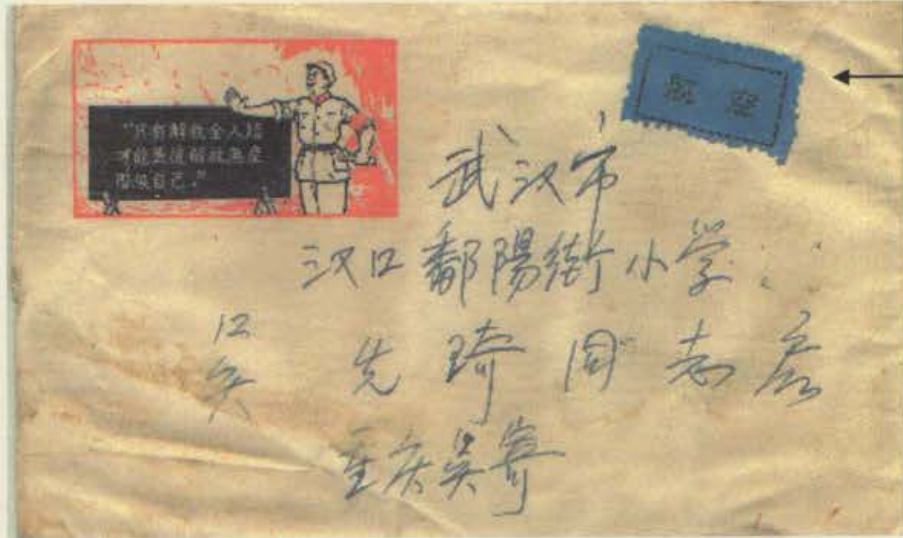 “只有解放全人類
才能最後解放無產
階級自己。”
航空
武汉市
汉口鄱陽街小学
吴先琦同志启
重庆吴寄